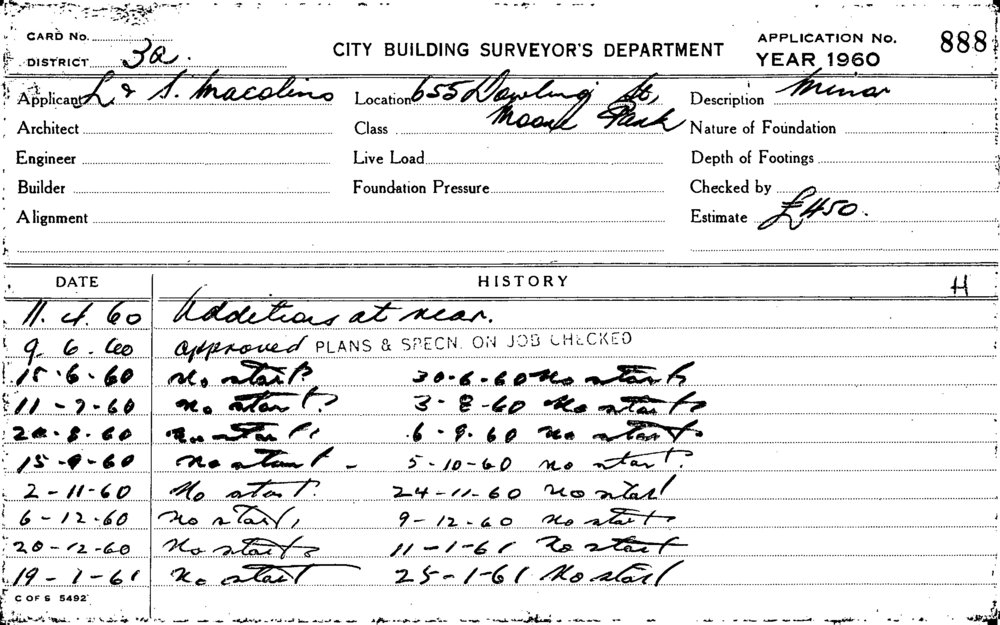 CARD No.
DISTRICT 3a.
CITY BUILDING SURVEYOR'S DEPARTMENT
APPLICATION No. 888
YEAR 1960
Applicant L. & S. Macolino Location 655 Dowling St, Description Minor
Moore Park
Architect Class Nature of Foundation
Engineer Live Load Depth of Footings
Builder Foundation Pressure Checked by
Alignment Estimate £450.
DATE HISTORY H
11. 4. 60 Additions at rear.
9. 6. 60 approved PLANS & SPECN. ON JOB CHECKED
15.6.60 No start 30-6-60 No start
11-7-60 No start. 3-8-60 No start
8.60 No start 6-9.60 No start
15-9-60 No start - 5-10-60 no start.
2-11-60 No start. 24-11-60 no start
6-12-60 No start, 9-12-60 no start
20-12-60 No start 11-1-61 No start
19-1-61 No start 25-1-61 No start
C OF S 5492